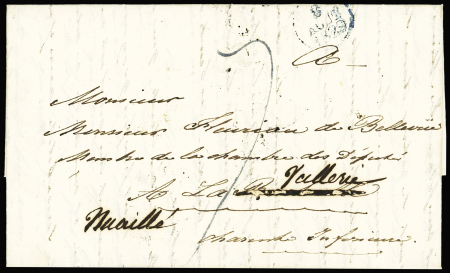 A
Monsieur
Monsieur Fleuriau de Bellevue
Membre de la chambre des Députés
A La Vallerie
Nuaillé
charente Inférieure.